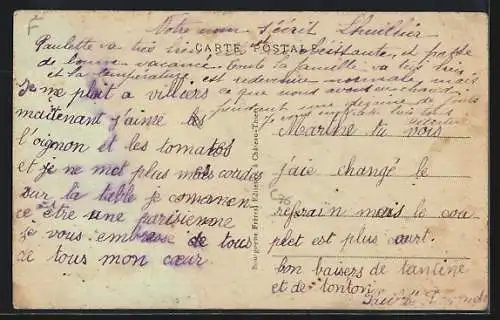 Notre nom s'écrit Lhuillier
Paulette va très très obéissante, et passe
CARTE POSTALE
de bonne vacance toute la famille va très bien
et la température est redevenue normale, mais
ce que nous avons eu chaud
pendant une dizaine de jours
Je me plait a villiers
maitenant j'aime les
l'oignon et les tomates
et je ne met plus mes coudes
sur la table je commen
ce être une parisienne
je vous embrasse de tous
de tous mon cœur
Bourgogne Frères, Editeurs à Château-Thierry
Marthe tu vois
j'aie changé le
refrain mais le cou
plet est plus court.
bon baisers de tantine
et de tonton